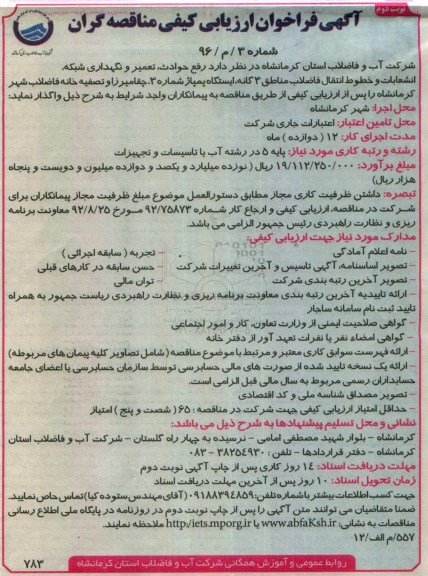 نوبت دوم
آگهی فراخوان ارزیابی کیفی مناقصه گران
شماره ۳ / م / ۹۶
شرکت آب و فاضلاب استان کرمانشاه در نظر دارد رفع حوادث، تعمیر و نگهداری شبکه،
انشعابات و خطوط انتقال فاضلاب مناطق ۳ گانه، ایستگاه پمپاژ شماره ۳، چقامیرزا و تصفیه خانه فاضلاب شهر
کرمانشاه را پس از ارزیابی کیفی از طریق مناقصه به پیمانکاران واجد شرایط به شرح ذیل واگذار نماید:
محل اجرا: شهر کرمانشاه
محل تامین اعتبار: اعتبارات جاری شرکت
مدت اجرای کار: ۱۲ ( دوازده ) ماه
رشته و رتبه کاری مورد نیاز: پایه ۵ در رشته آب یا تاسیسات و تجهیزات
مبلغ برآورد: ۱۹/۱۱۲/۲۵۰/۰۰۰ ریال ( نوزده میلیارد و یکصد و دوازده میلیون و دویست و پنجاه
هزار ریال)
تبصره: داشتن ظرفیت کاری مجاز مطابق دستورالعمل موضوع مبلغ ظرفیت مجاز پیمانکاران برای
شرکت در مناقصه، ارزیابی کیفی و ارجاع کار شماره ۹۲/۷۵۸۷۳ مورخ ۹۲/۸/۲۵ معاونت برنامه
ریزی و نظارت راهبردی رئیس جمهور الزامی می باشد.
مدارک مورد نیاز جهت ارزیابی کیفی:
– نامه اعلام آمادگی – تجربه ( سابقه اجرائی )
– تصویر اساسنامه، آگهی تاسیس و آخرین تغییرات شرکت – حسن سابقه در کارهای قبلی
– تصویر آخرین رتبه بندی شرکت – توان مالی
– ارائه تاییدیه آخرین رتبه بندی معاونت برنامه ریزی و نظارت راهبردی ریاست جمهور به همراه
تایید ثبت نام سامانه ساجار
– گواهی صلاحیت ایمنی از وزارت تعاون، کار و امور اجتماعی
– گواهی امضاء نفر یا نفرات تعهد آور از دفتر خانه
– ارائه فهرست سوابق کاری معتبر و مرتبط با موضوع مناقصه (شامل تصاویر کلیه پیمان های مربوطه)
– ارائه یک نسخه تایید شده از صورت های مالی حسابرسی توسط سازمان حسابرسی یا اعضای جامعه
حسابداران رسمی مربوط به سال مالی قبل الزامی است.
– تصویر مصداق شناسه ملی و کد اقتصادی
– حداقل امتیاز ارزیابی کیفی جهت شرکت در مناقصه : ۶۵ ( شصت و پنج ) امتیاز
نشانی و محل تسلیم پیشنهادها به شرح ذیل می باشد:
کرمانشاه – بلوار شهید مصطفی امامی – نرسیده به چهار راه گلستان – شرکت آب و فاضلاب استان
کرمانشاه – دفتر قراردادها – تلفن : ۳۸۲۵۴۹۳۰ – ۰۸۳
مهلت دریافت اسناد: ۱۴ روز کاری پس از چاپ آگهی نوبت دوم
زمان تحویل اسناد: ۱۰ روز پس از آخرین مهلت دریافت اسناد
جهت کسب اطلاعات بیشتر با شماره تلفن: ۰۹۱۸۸۳۹۴۸۵۹ (آقای مهندس ستوده کیا) تماس حاصل نمایید.
ضمنا متقاضیان می توانند متن آگهی را پس از چاپ نوبت دوم در روزنامه در پایگاه ملی اطلاع رسانی
مناقصات به نشانی: http://iets.mporg.ir یا www.abfaKsh.ir ملاحظه نمایند.
۵۵۷/م الف/۱۲
روابط عمومی و آموزش همگانی شرکت آب و فاضلاب استان کرمانشاه
۷۸۳